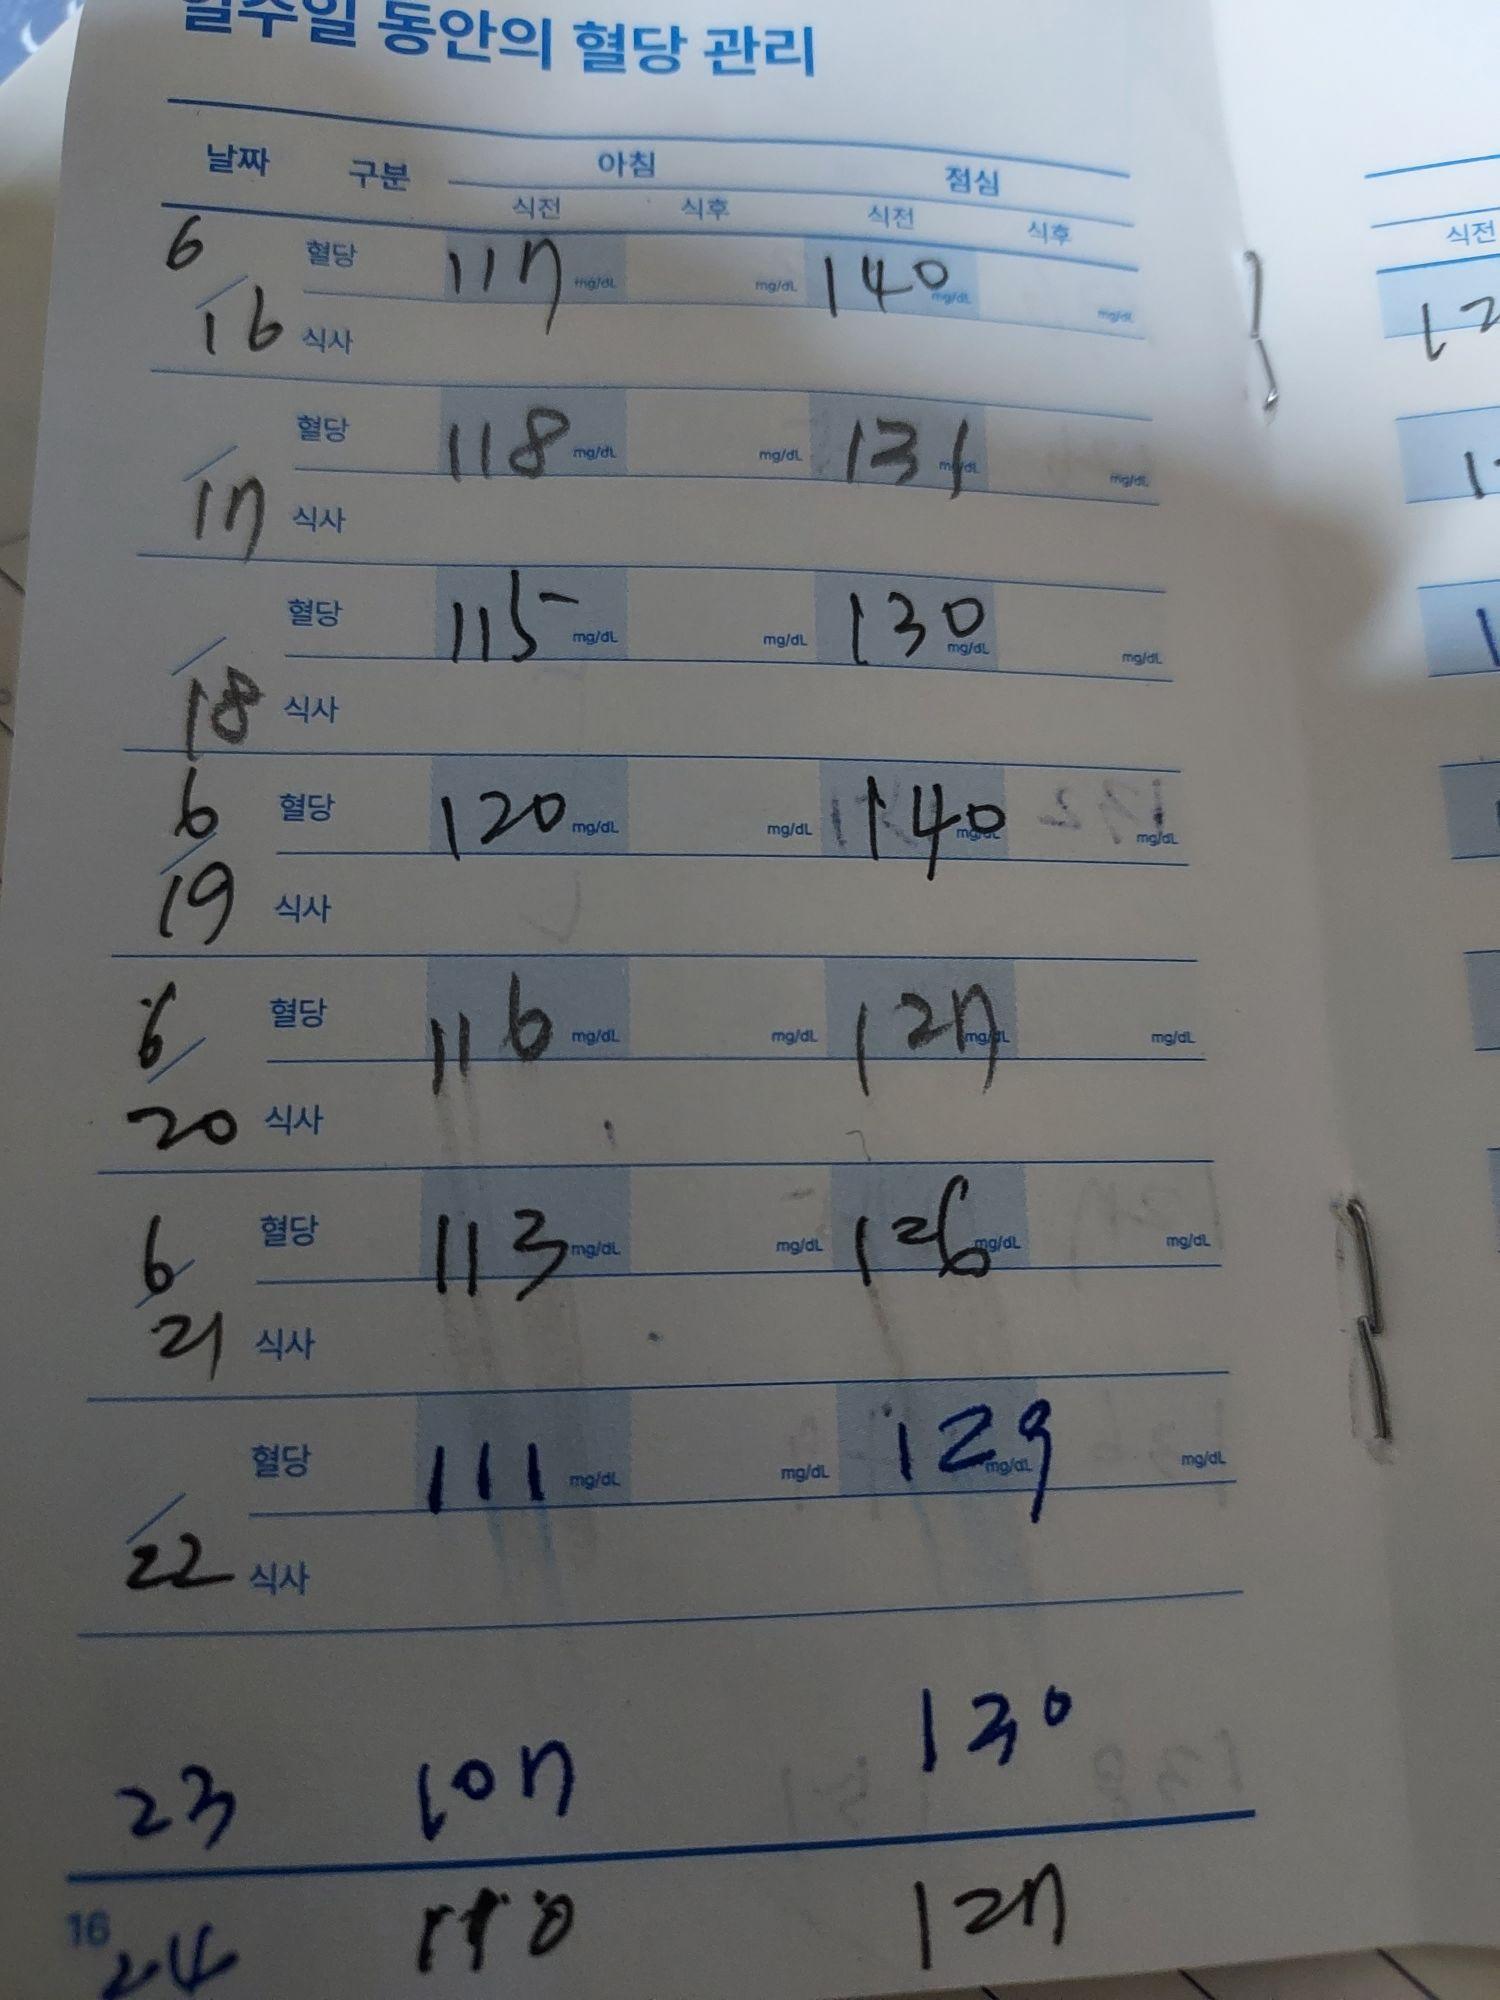 일주일 동안의 혈당 관리
날짜 구분 아침 점심
식전 식후 식전 식후 식전
6/16 혈당 117 mg/dL mg/dL 140 mg/dL mg/dL
식사
/17 혈당 118 mg/dL mg/dL 131 mg/dL mg/dL
식사
/18 혈당 115 mg/dL mg/dL 130 mg/dL mg/dL
식사
6/19 혈당 120 mg/dL mg/dL 140 mg/dL mg/dL
식사
6/20 혈당 116 mg/dL mg/dL 127 mg/dL mg/dL
식사
6/21 혈당 113 mg/dL mg/dL 126 mg/dL mg/dL
식사
/22 혈당 111 mg/dL mg/dL 129 mg/dL mg/dL
식사
23 107 130
16
24 110 127